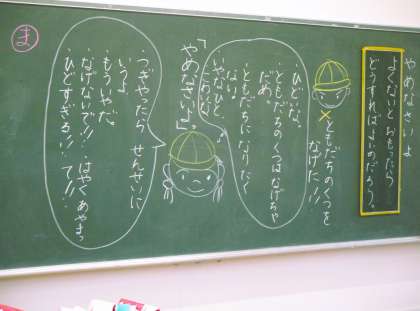 やめなさいよ
よくないと おもったら
どうすればよいのだろう。
×ともだちのくつを
なげた!!
・ひどいな。
・ともだちのくつはなげちゃ
だめ。
・ともだちに なりたく
ない。
・いやなひと。
・こわいな。
「やめなさいよ。」
・つぎやったら せんせいに
いうよ。
・もういやだ。
・なげないで!! ・はやく あやまっ
・ひどすぎる!! て!!
ま